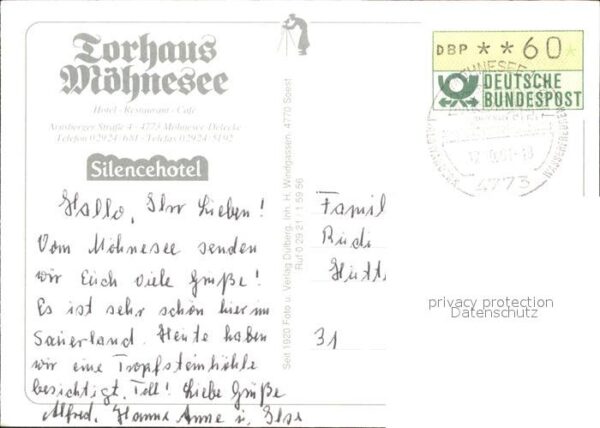 Torhaus
Möhnesee
Hotel - Restaurant - Café
Arnsberger Straße 4 · 4773 Möhnesee-Delecke
Telefon 02924-681 · Telefax 02924-5192
Silencehotel
Hallo, Ihr Lieben!
Vom Möhnesee senden
wir Euch viele Grüße!
Es ist sehr schön hier im
Sauerland. Heute haben
wir eine Tropfsteinhöhle
besichtigt. Toll! Liebe Grüße
Alfred, Hanna Anne u. Ilse
Seit 1920 Foto u. Verlag Dülberg, Inh. H. Windgassen, 4770 Soest
Ruf 0 29 21 / 1 59 56
DBP **60*
DEUTSCHE
BUNDESPOST
MÖHNESEE
4773
Famil
Rudi
Hütt
31
privacy protection
Datenschutz